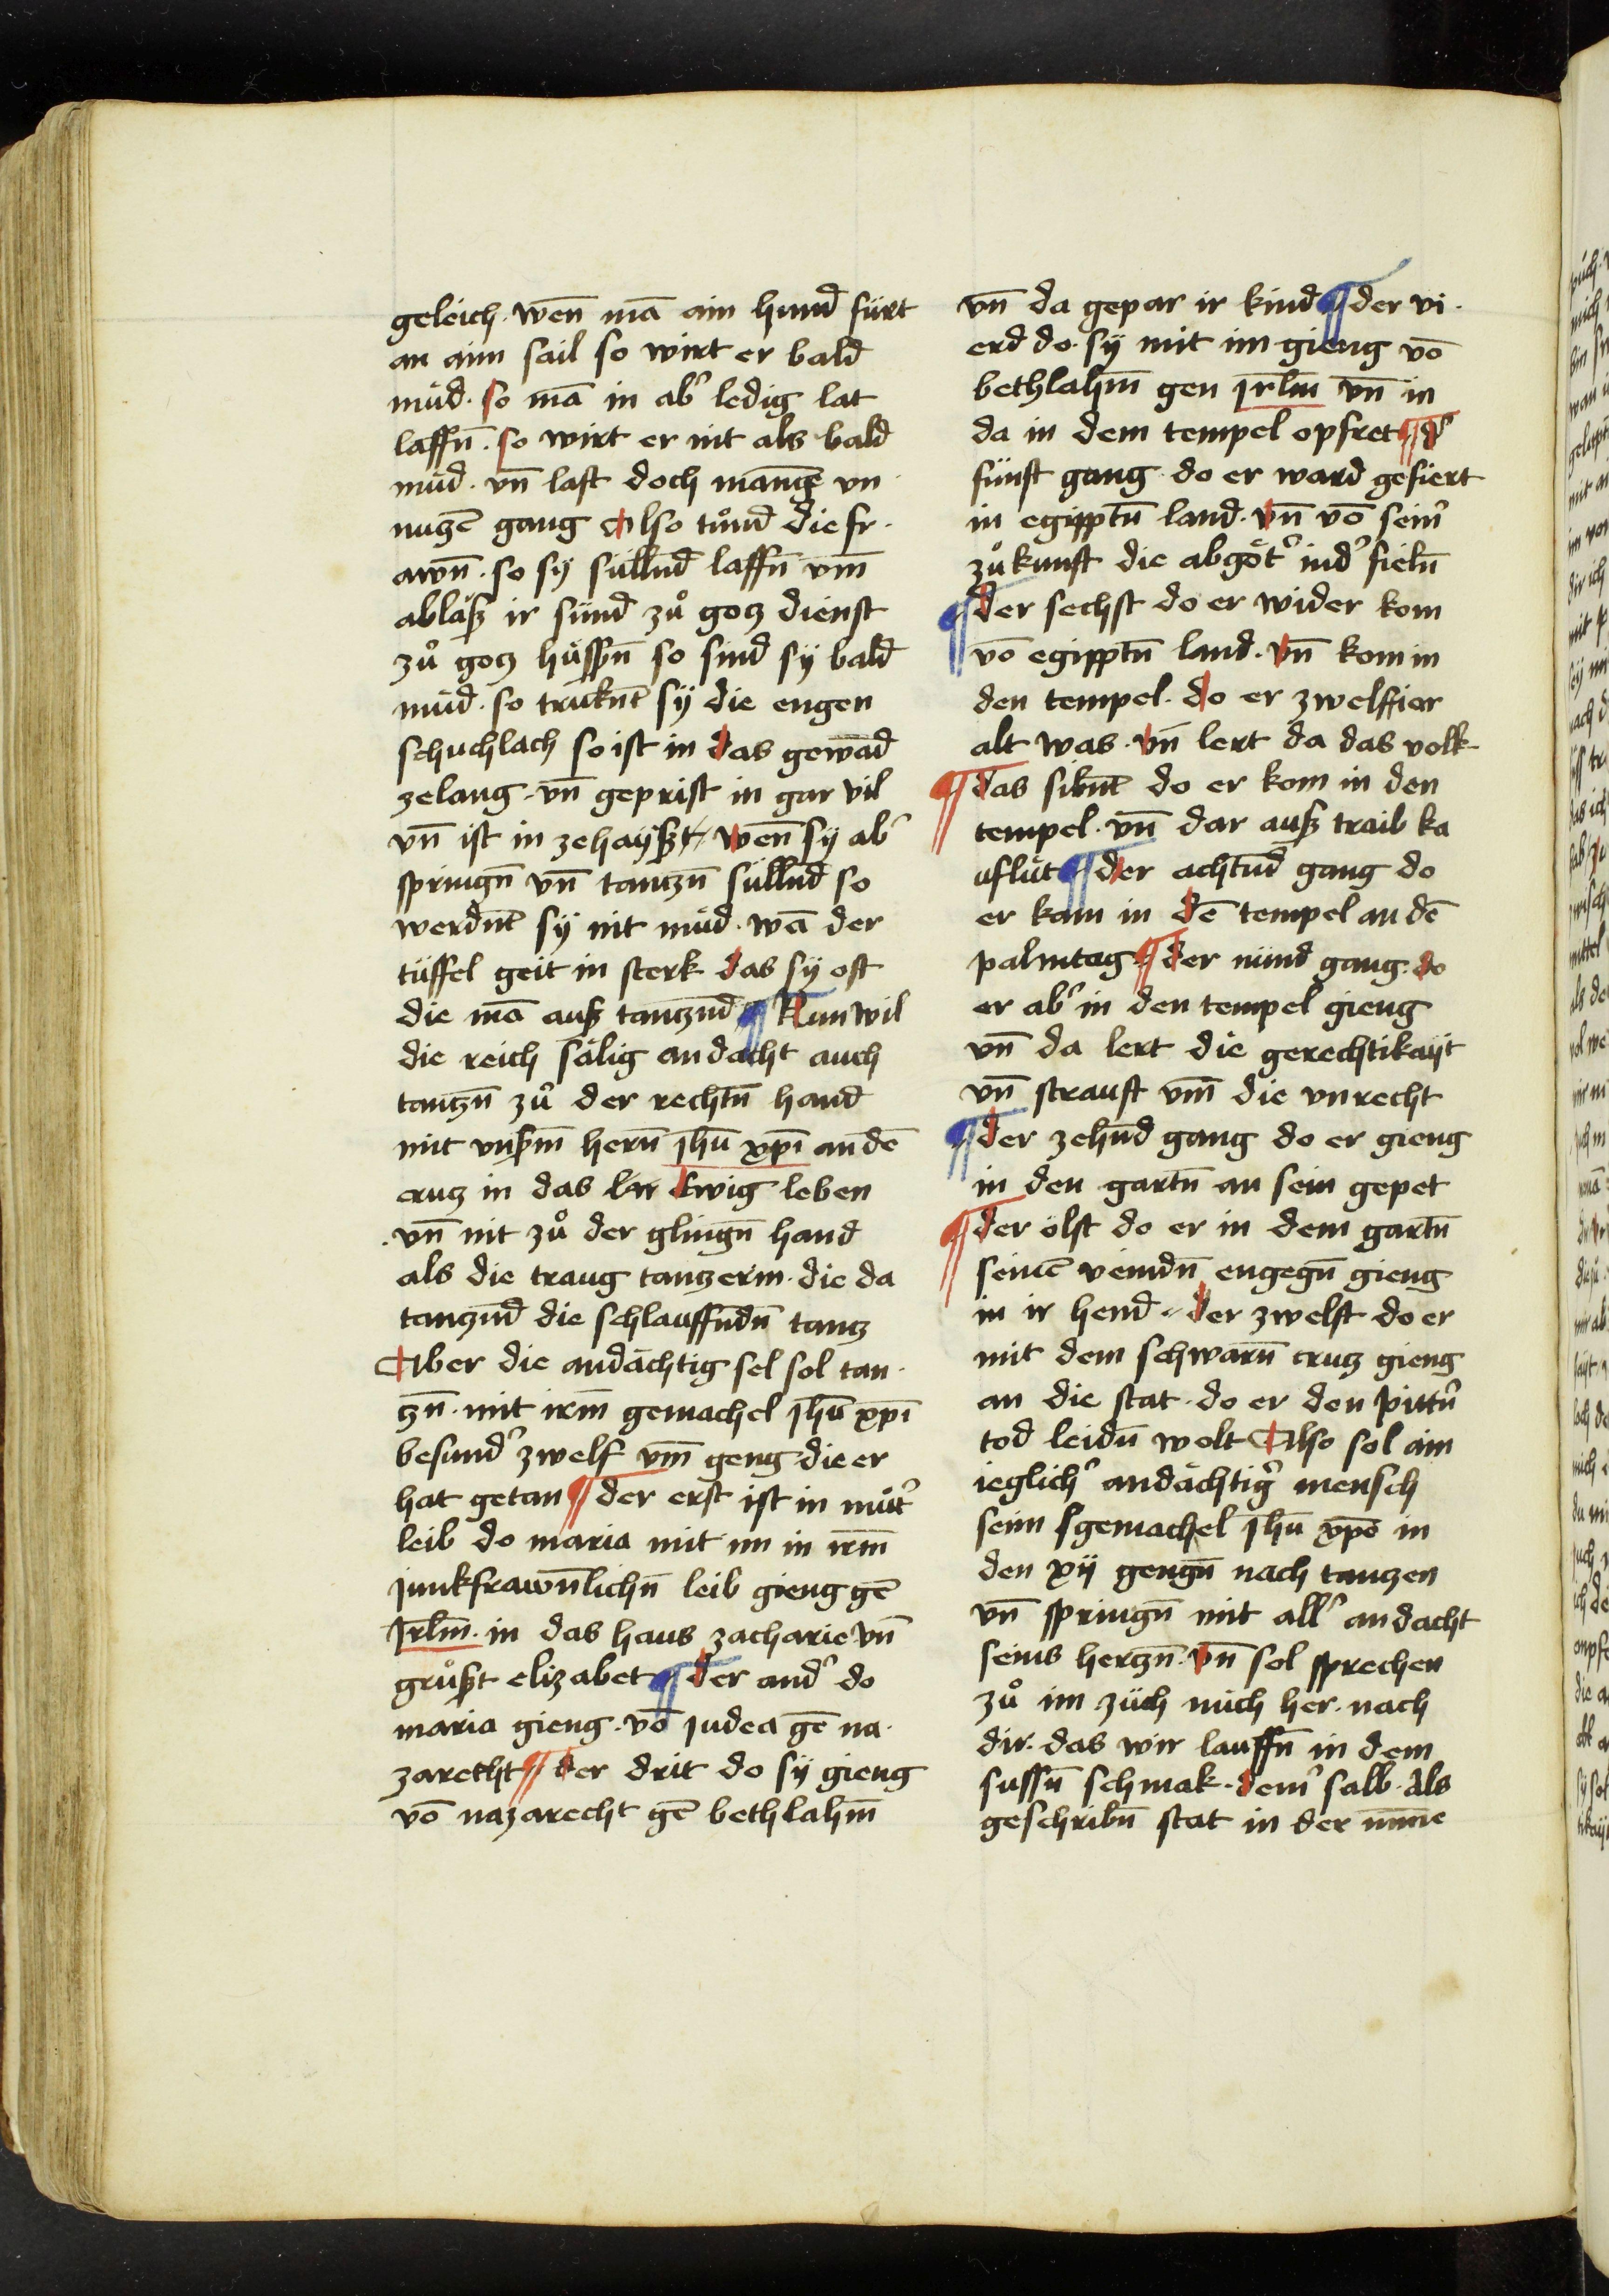 geleich · wen̄ mā ain hund fürt
an aim sail so wirt er bald
müd · so mā in ab᾿ ledig lat
laffn̄ · so wirt er nit als bald
müd · vn̄ laft doch mangē vn
nuczē gang Also tůnd die fr·
awn̄ · so sÿ sulln̄d laffn̄ vm̄
ablaß ir sünd zů gocz dienst
zů gocz hüssn̄ so sind sÿ bald
müd · so trukn̄t sÿ die engen
schuchlach so ist in das gewād
ze lang · vn̄ geprist in gar vil
vn̄ ist in ze haÿßt · wen̄ sÿ ab᾿
springn̄ vn̄ tanczn̄ sulln̄d so
werdn̄t sÿ nit müd · wā der
tüffel geit in sterk das sÿ oft
die mā auß tanczn̄d ¶ Nun wil
die reich sälig andacht auch
tanczn̄ zů der rechtn̄ hand
mit vnßm̄ hern̄ jhū xp̄i an dē
crucz in das ewig leben
vn̄ nit zů der glingn̄ hand
als die traug tanczerin · die da
tanczn̄d die schlauffn̄dn̄ tancz
Aber die andächtig sel sol tan·
czn̄ · mit irm̄ gemachel jhū xp̄i
besund᾿ zwelf vm̄ geng · die er
hat getan ¶ der erst ist in mut᾿
leib do maria mit im in irm̄
junkfrawn̄lichn̄ leib gieng gē
jrlm̄ · in das haus zacharie vn̄
grůßt elizabet ¶ der and᾿ do
maria gieng · vō judea gē na·
zaretht ¶ der drit do sÿ gieng
vō nazarecht gē bethlahm̄
vn̄ da gepar ir kind ¶ der vi·
erd do · sÿ mit im gieng vō
bethlahm̄ gen jrlm̄ vn̄ in
da in dem tempel opfret ¶ d᾿
fünft gang · do er ward gefiert
in egipptn̄ land · vn̄ vō sein᾿
zůkunft die abgöt᾿ nid᾿ fieln̄
¶ der sechst do er wider kom
vō egipptn̄ land · vn̄ kom in
den tempel · do er zwelff iar
alt was · vn̄ lert da das volk
¶ das sibn̄t do er kom in den
tempel · vn̄ dar auß traib ka
uflüt ¶ der achtn̄d gang do
er kam in dē tempel an dē
palmtag ¶ der nünd gang · do
er ab᾿ in den tempel gieng
vn̄ da lert die gerechtikaÿt
vn̄ strauft vm̄ die vnrecht
¶ der zehn̄d gang do er gieng
in den gartn̄ an sein gepet
¶ der ölft do er in dem gartn̄
seinē veindn̄ engegn̄ gieng
in ir hend · der zwelft do er
mit dem schwarn̄ crucz gieng
an die stat · do er den pittn᾿
tod leidn̄ wolt Also sol ain
ieglich᾿ andächtig᾿ mensch
seim gemachel jhū xp̄o in
den xij gengn̄ nach tanczen
vn̄ springn̄ mit all᾿ andacht
seins herczn̄ · vn̄ sol sprechen
zů im züch mich her · nach
dir · das wir lauffn̄ in dem
sussn̄ schmak · dein᾿ salb · Als
geschribn̄ stat in der minne